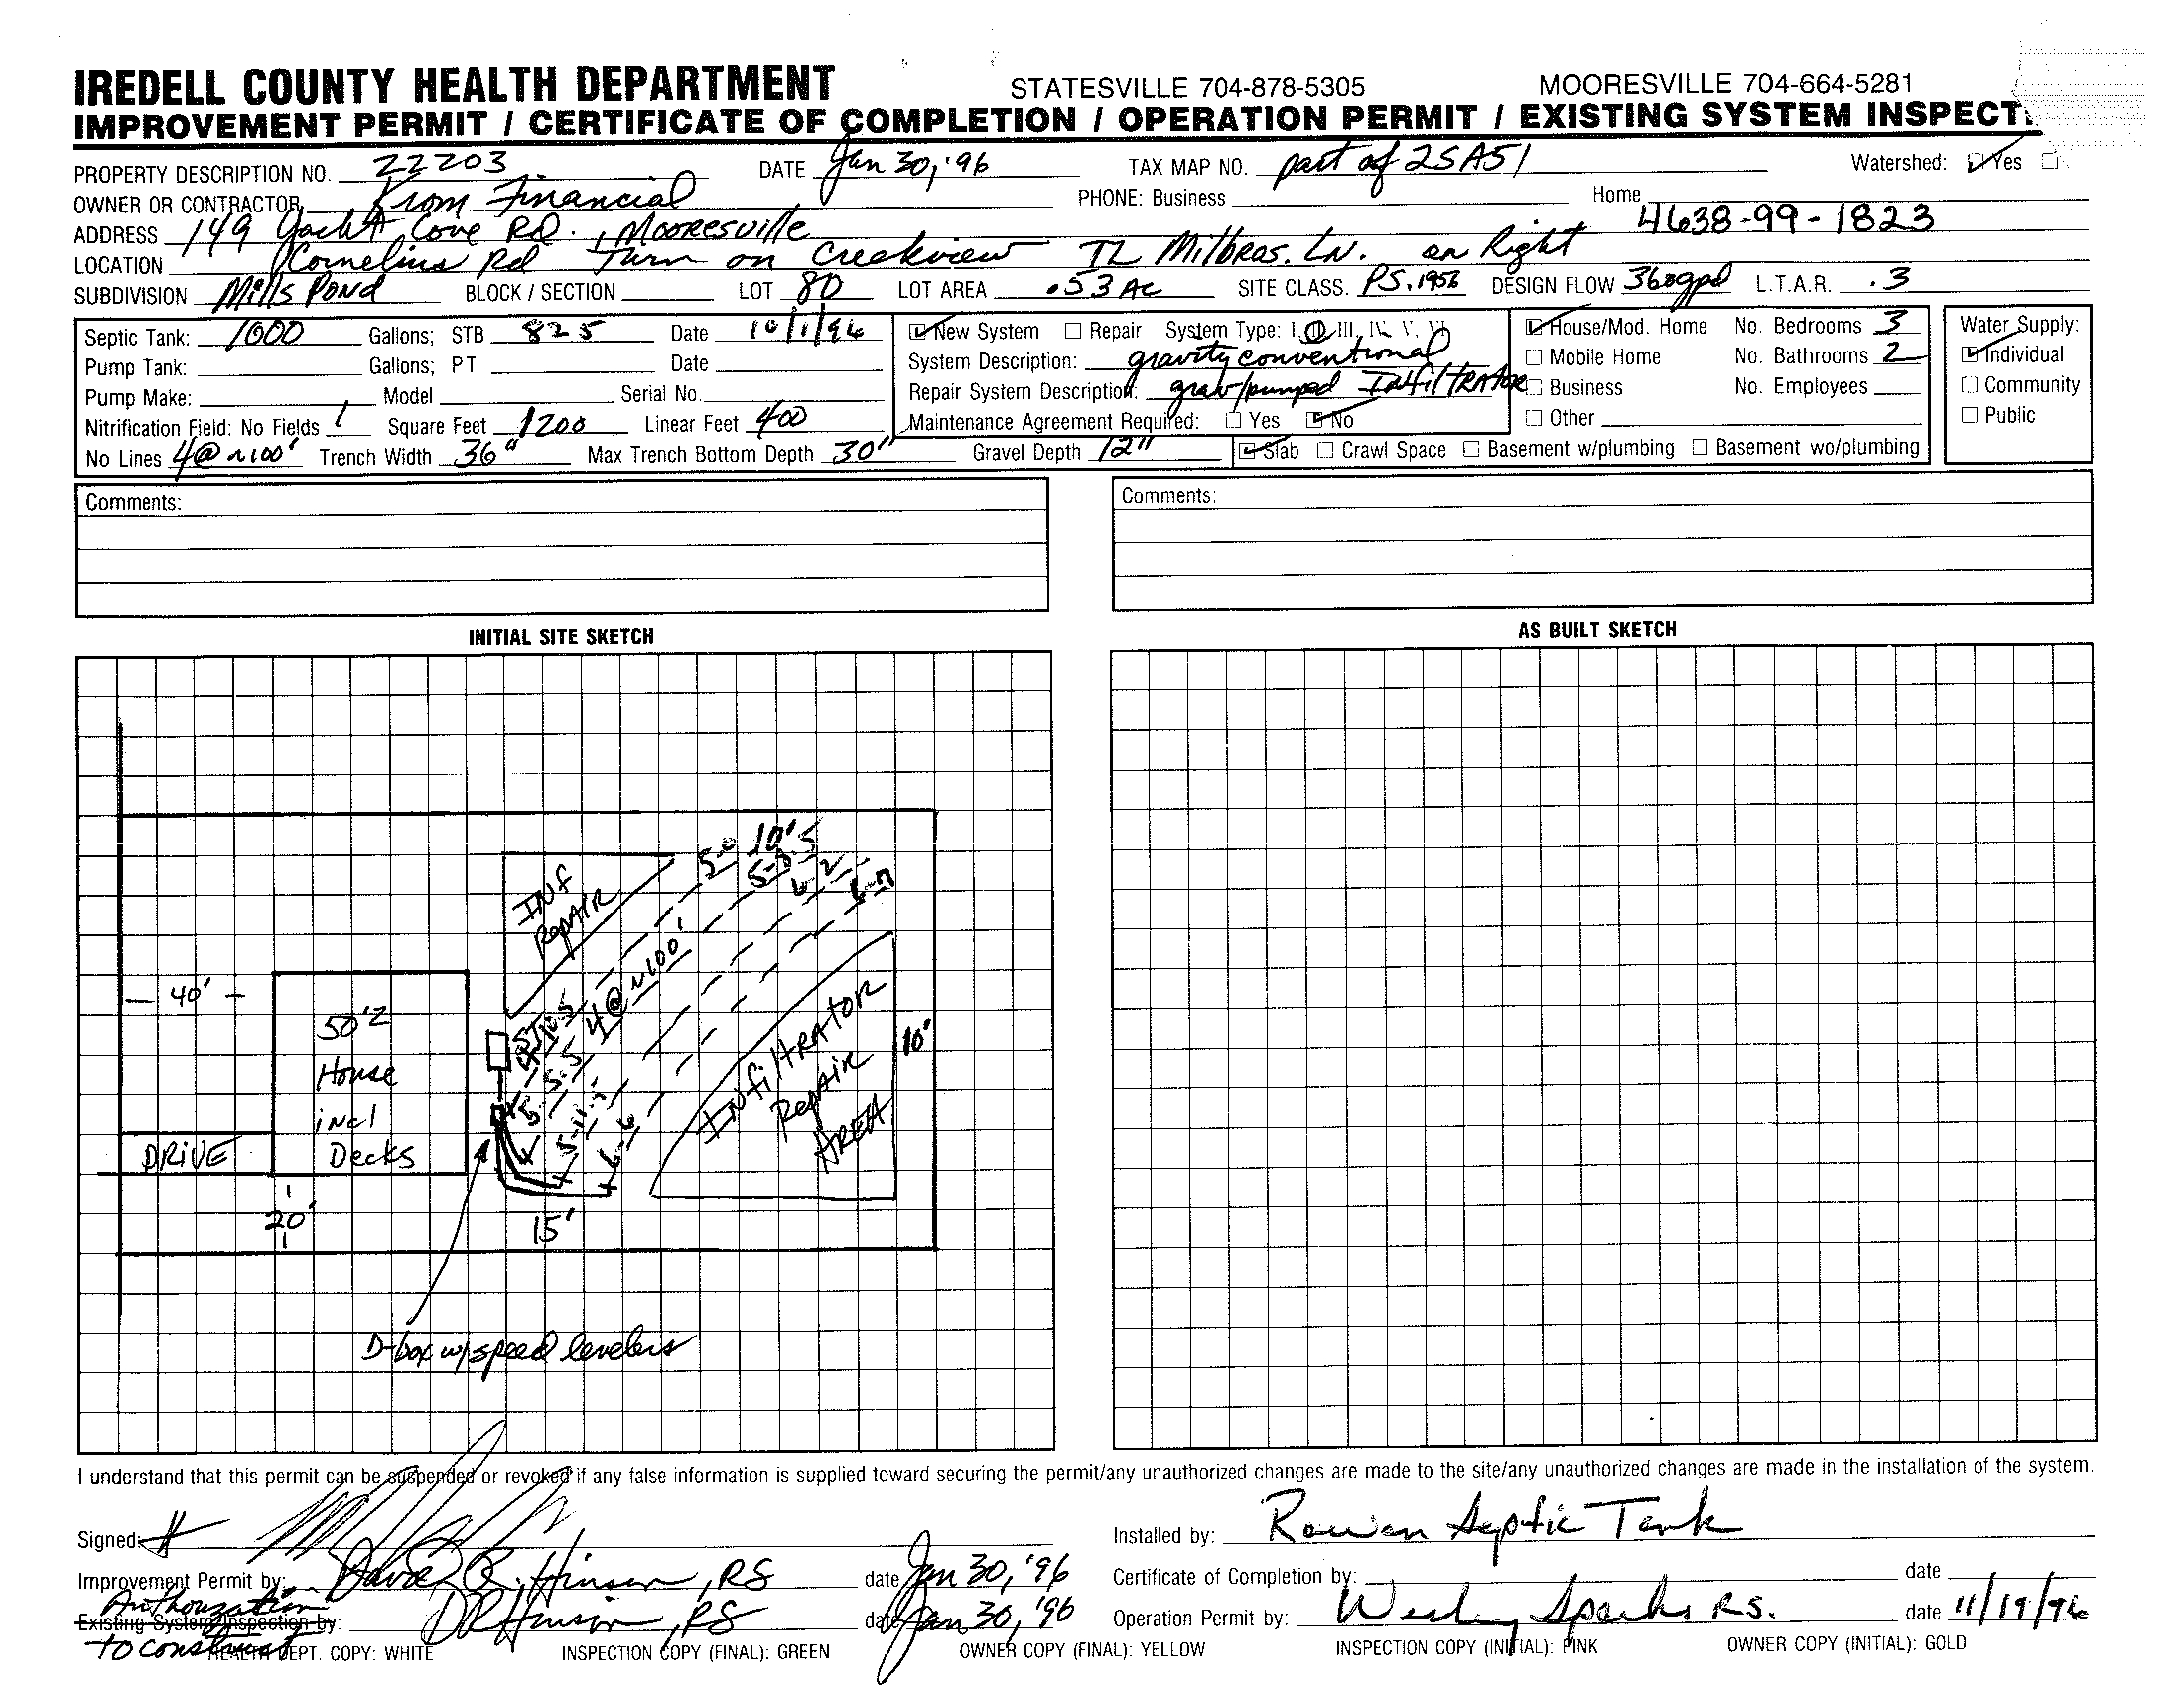 IREDELL COUNTY HEALTH DEPARTMENT STATESVILLE 704-878-5305 MOORESVILLE 704-664-5281
IMPROVEMENT PERMIT / CERTIFICATE OF COMPLETION / OPERATION PERMIT / EXISTING SYSTEM INSPECT
PROPERTY DESCRIPTION NO. 22203 DATE Jan 30, '96 TAX MAP NO. part of 2SA51 Watershed: Yes
OWNER OR CONTRACTOR Krom Financial PHONE: Business Home
ADDRESS 149 Yacht Cove Rd., Mooresville 4638-99-1823
LOCATION Cornelius Rd Turn on Creekview TL Milbros. LN. on Right
SUBDIVISION Mills Pond BLOCK / SECTION LOT 80 LOT AREA .53 AC SITE CLASS. PS, 1956 DESIGN FLOW 360gpd L.T.A.R. .3
Septic Tank: 1000 Gallons; STB 825 Date 10/1/96
Pump Tank: Gallons; PT Date
Pump Make: Model Serial No.
Nitrification Field: No Fields 1 Square Feet 1200 Linear Feet 400
No Lines 4@~100' Trench Width 36" Max Trench Bottom Depth 30" Gravel Depth 12"
New System Repair System Type: I, II, III, IV, V, VI
System Description: gravity conventional
Repair System Description: grav/pumped InfiltRAtoR
Maintenance Agreement Required: Yes No
Slab Crawl Space Basement w/plumbing Basement wo/plumbing
House/Mod. Home No. Bedrooms 3
Mobile Home No. Bathrooms 2
Business No. Employees
Other
Water Supply:
Individual
Community
Public
Comments:
Comments:
INITIAL SITE SKETCH
AS BUILT SKETCH
10'
INf
RepAIR
4@~100'
40'
50'2
House
incl
Decks
DRIVE
InfiltRAtoR
RepAir
AREA
10'
20'
15'
D-box w/speed levelers
I understand that this permit can be suspended or revoked if any false information is supplied toward securing the permit/any unauthorized changes are made to the site/any unauthorized changes are made in the installation of the system.
Signed:
Improvement Permit by: David R. Hinson, RS date Jan 30, '96
Authorization
Existing System Inspection by: DR Hinson, RS date Jan 30, '96
to construct
Installed by: Rowan Septic Tank
Certificate of Completion by: date
Operation Permit by: Wesley Sparks R.S. date 11/19/96
HEALTH DEPT. COPY: WHITE INSPECTION COPY (FINAL): GREEN OWNER COPY (FINAL): YELLOW INSPECTION COPY (INITIAL): PINK OWNER COPY (INITIAL): GOLD